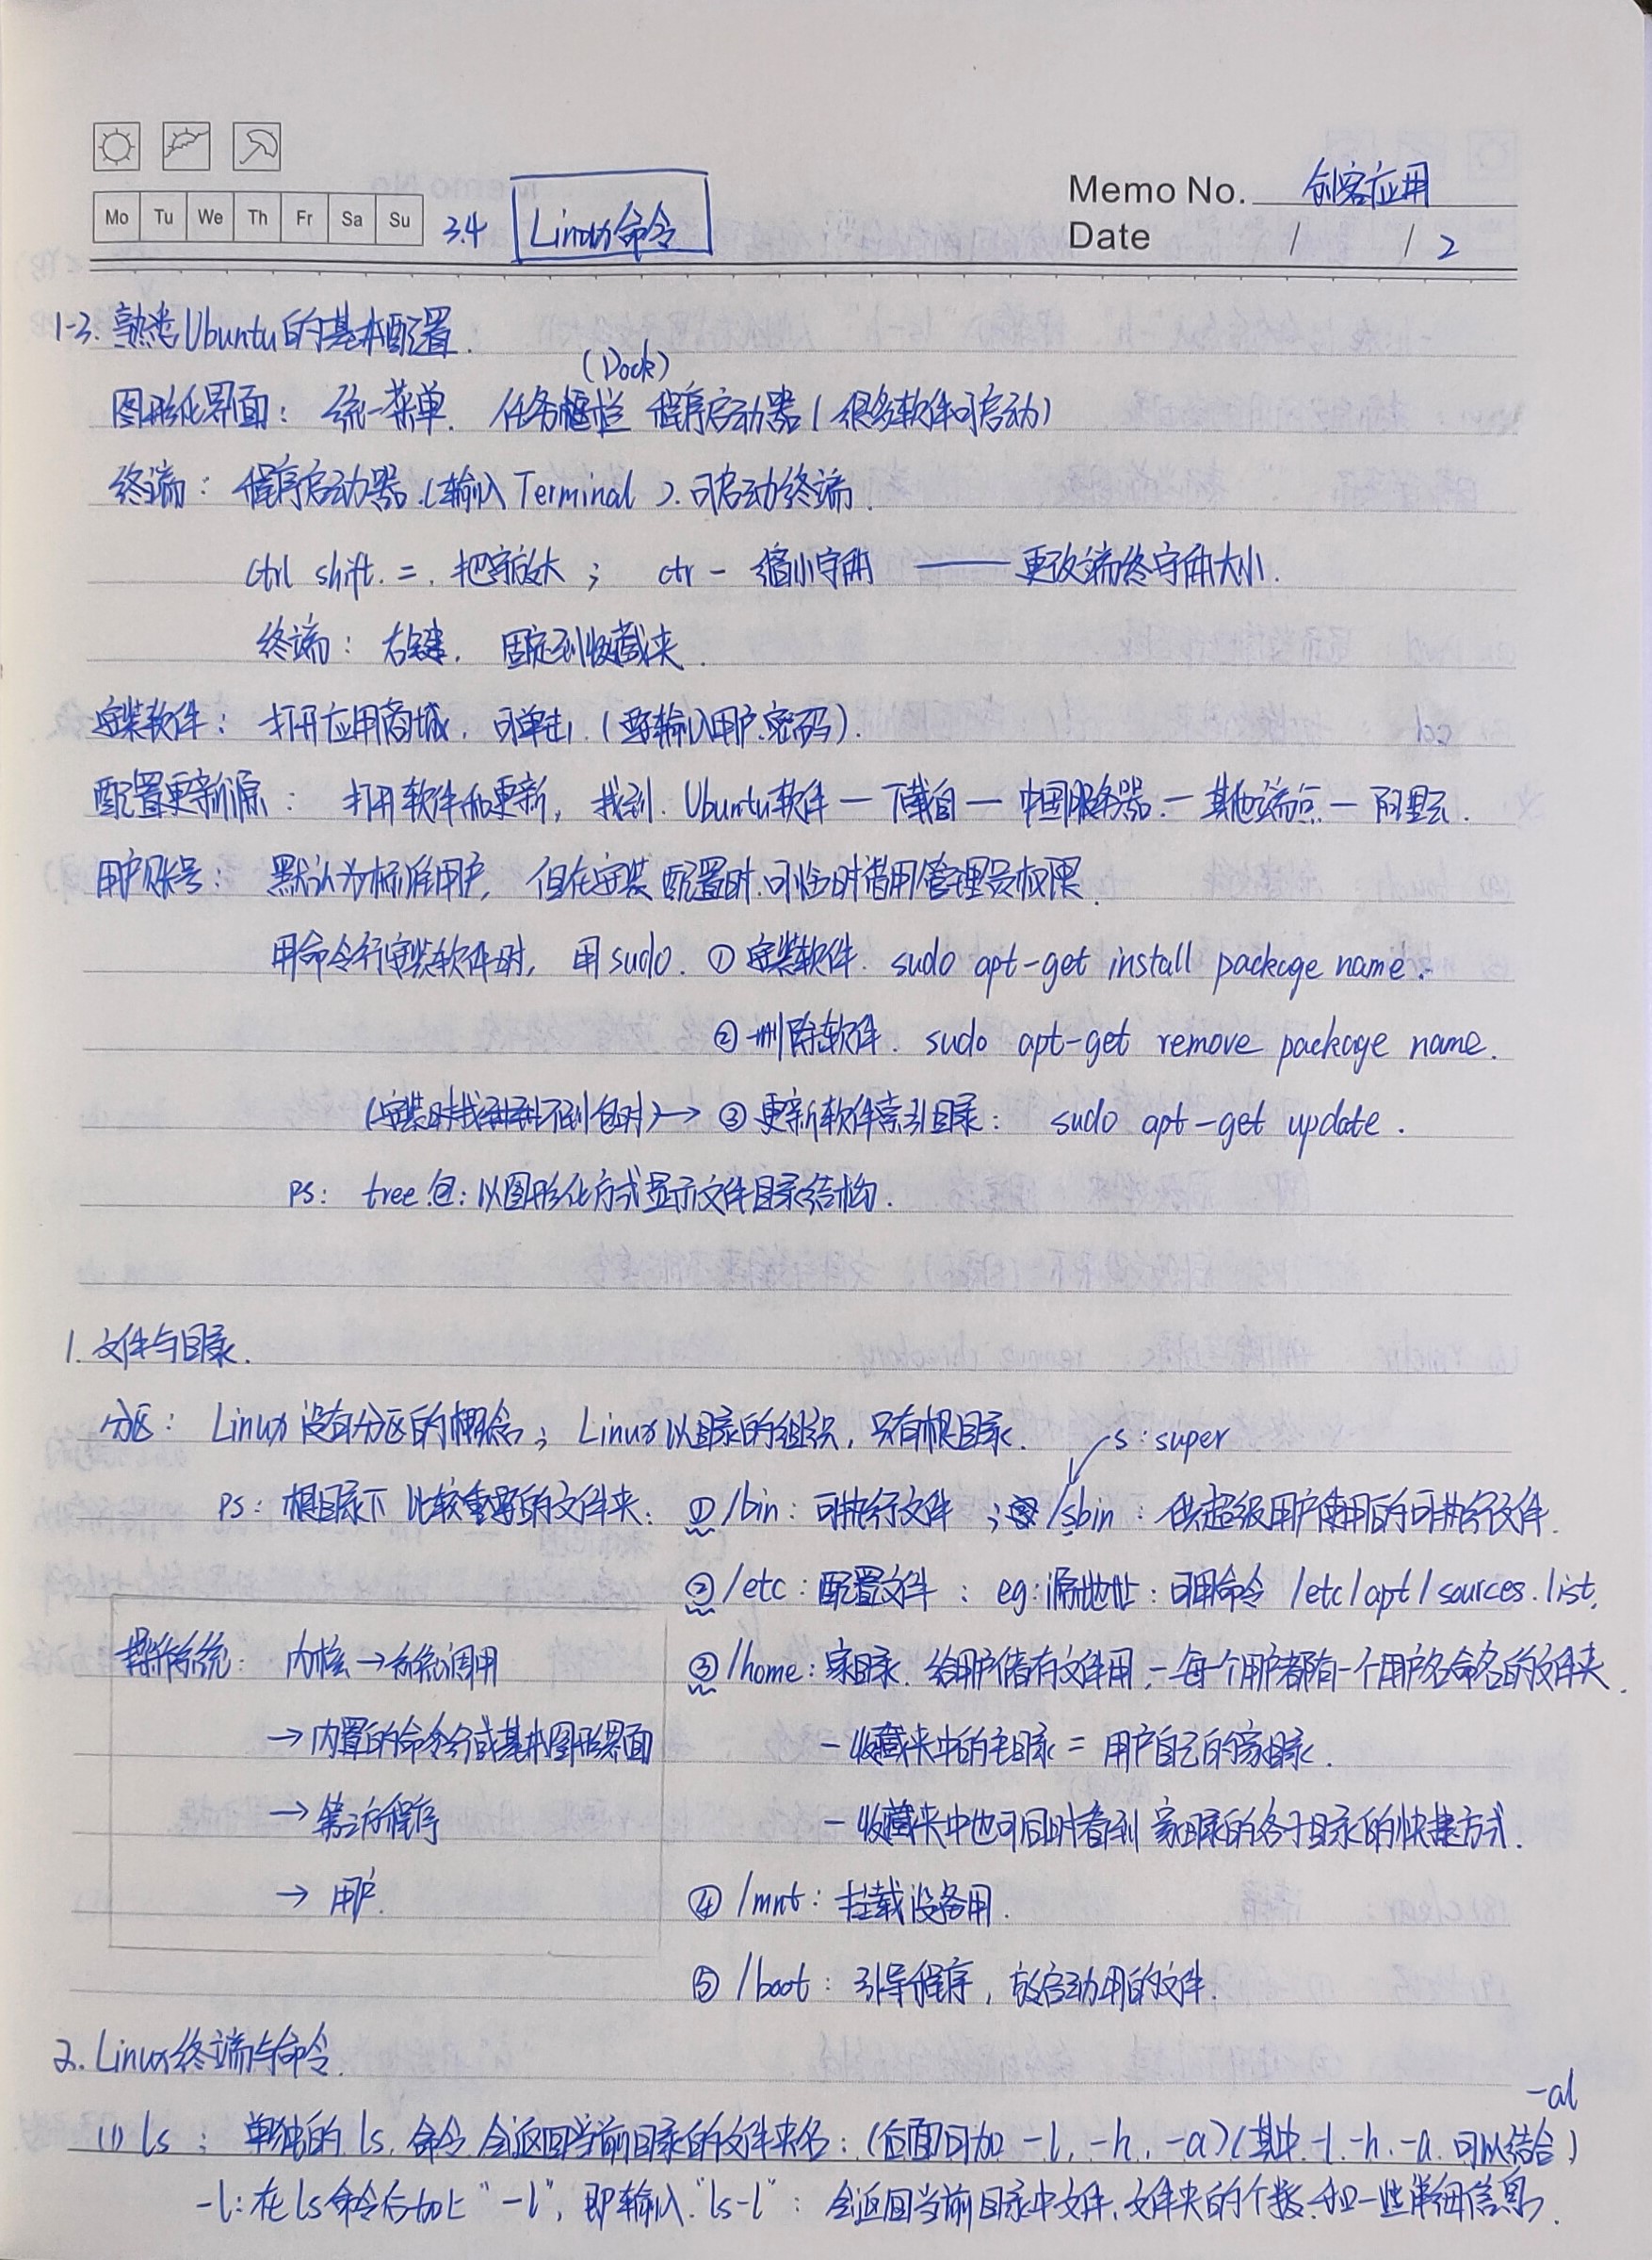 Mo Tu We Th Fr Sa Su
3.4 Linux命令
Memo No. 创客应用
Date / / 2
1-3. 熟悉Ubuntu的基本配置.
(Dock)
图形化界面: 统一菜单. 任务栏 程序启动器(很多软件可启动)
终端: 程序启动器.(输入Terminal). 可启动终端.
ctrl shift. =. 把字放大; ctr - 缩小字体 —— 更改端终字体大小.
终端: 右键. 固定到收藏夹.
安装软件: 打开应用商城, 可单击, (要输入用户.密码).
配置更新源: 打开软件和更新, 找到. Ubuntu软件 — 下载自 — 中国服务器 — 其他站点 — 阿里云.
用户账号: 默认为标准用户, 但在安装 配置时.可临时借用管理员权限.
用命令行安装软件时, 用sudo. ① 安装软件. sudo apt-get install package name.
② 删除软件. sudo apt-get remove package name.
(安装时找不到包时) → ③ 更新软件索引目录: sudo apt-get update.
ps: tree 包: 以图形化方式显示文件目录结构.
1. 文件与目录.
分区: Linux 没有分区的概念; Linux以目录的组织, 只有根目录.
s: super
ps: 根目录下 比较重要的文件夹: ① /bin: 可执行文件 ; /sbin: 供超级用户使用的可执行文件.
② /etc: 配置文件 : eg: 源地址: 可用命令 /etc/apt/sources.list.
操作系统: 内核 → 系统调用
③ /home: 家目录. 给用户储存文件用. - 每一个用户都有一个用户名命名的文件夹.
→ 内置的命令行或基本图形界面
- 收藏夹中的主目录 = 用户自己的家目录.
→ 第三方程序
- 收藏夹中也可同时看到 家目录的各子目录的快捷方式.
→ 用户.
④ /mnt: 挂载设备用.
⑤ /boot: 引导程序, 放启动用的文件.
2. Linux终端与命令.
-al
(1) ls: 单独的 ls. 命令 会返回当前目录的文件夹名: (后面可加 -l, -h, -a)(其中 -l. -h. -a. 可以结合)
-l: 在ls命令后加上 "-l", 即输入. "ls-l": 会返回当前目录中文件、文件夹的个数.和一些详细信息.